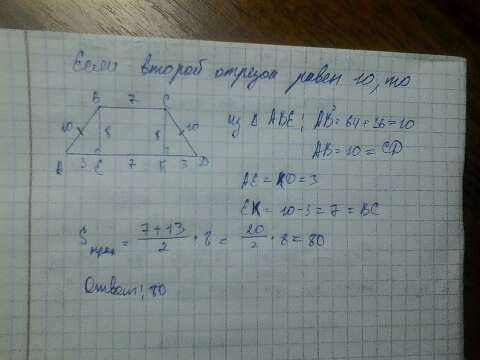 Если второй отрезок равен 10, то
B 7 C
10 8 8 10
A 3 E 7 K 3 D
из Δ ABE; AB² = 64 + 36 = 10
AB = 10 = CD
AE = KD = 3
EK = 10 - 3 = 7 = BC
Sтрап = (7 + 13)/2 · 8 = 20/2 · 8 = 80
Ответ: 80